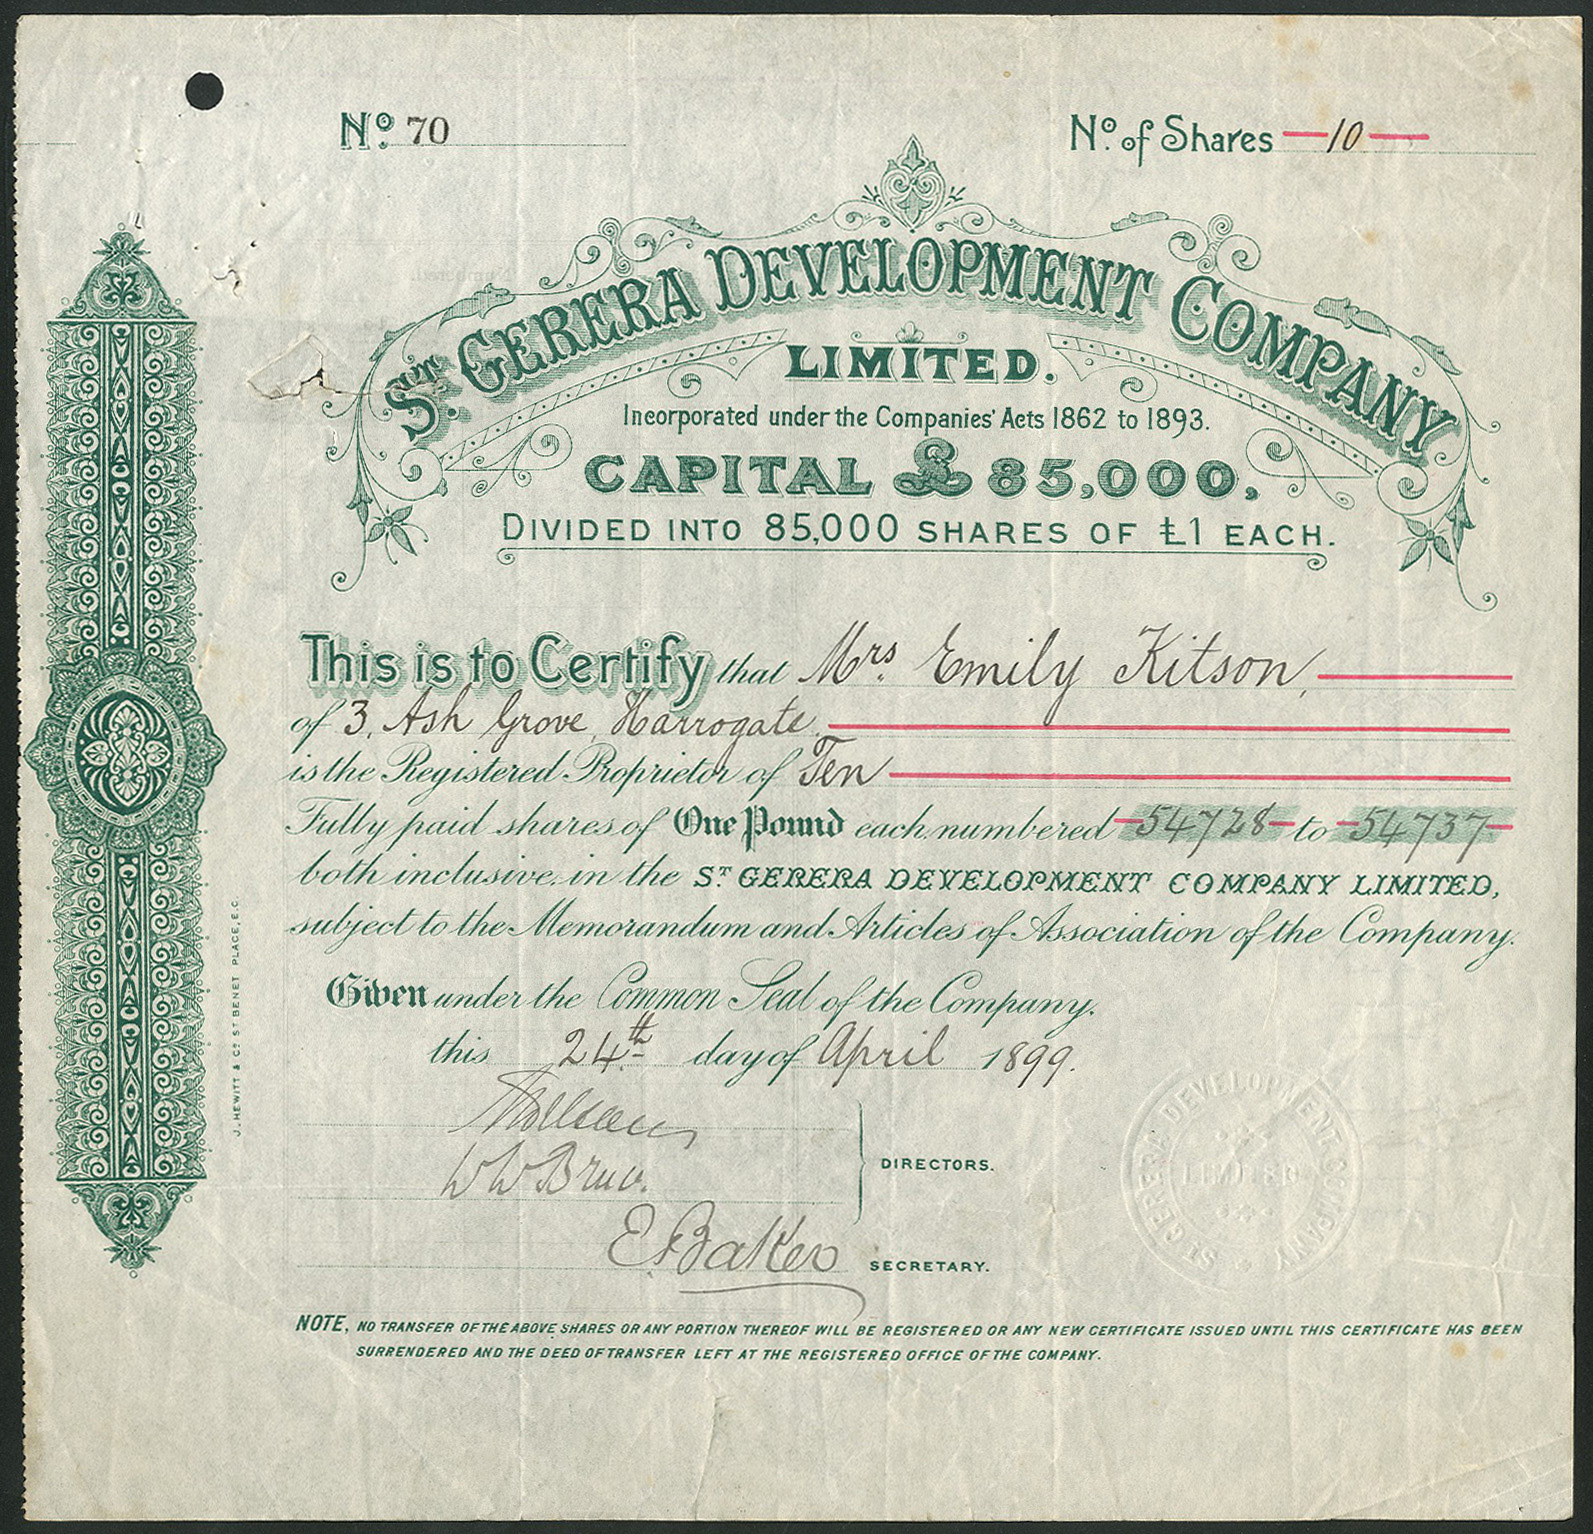 No. 70
No. of Shares 10
ST. GERERA DEVELOPMENT COMPANY
LIMITED.
Incorporated under the Companies' Acts 1862 to 1893.
CAPITAL £85,000,
DIVIDED INTO 85,000 SHARES OF £1 EACH.
This is to Certify that Mrs. Emily Kitson,
of 3, Ash Grove, Harrogate
is the Registered Proprietor of Ten
Fully paid shares of One Pound each, numbered 54728 to 54737
both inclusive, in the ST GERERA DEVELOPMENT COMPANY LIMITED,
subject to the Memorandum and Articles of Association of the Company.
Given under the Common Seal of the Company.
this 24th day of April 1899.
W W
DIRECTORS.
E. Baker SECRETARY.
NOTE, NO TRANSFER OF THE ABOVE SHARES OR ANY PORTION THEREOF WILL BE REGISTERED OR ANY NEW CERTIFICATE ISSUED UNTIL THIS CERTIFICATE HAS BEEN
SURRENDERED AND THE DEED OF TRANSFER LEFT AT THE REGISTERED OFFICE OF THE COMPANY.
J. HEWITT & CO ST BENET PLACE, E.C.
ST GERERA DEVELOPMENT COMPANY
LIMITED